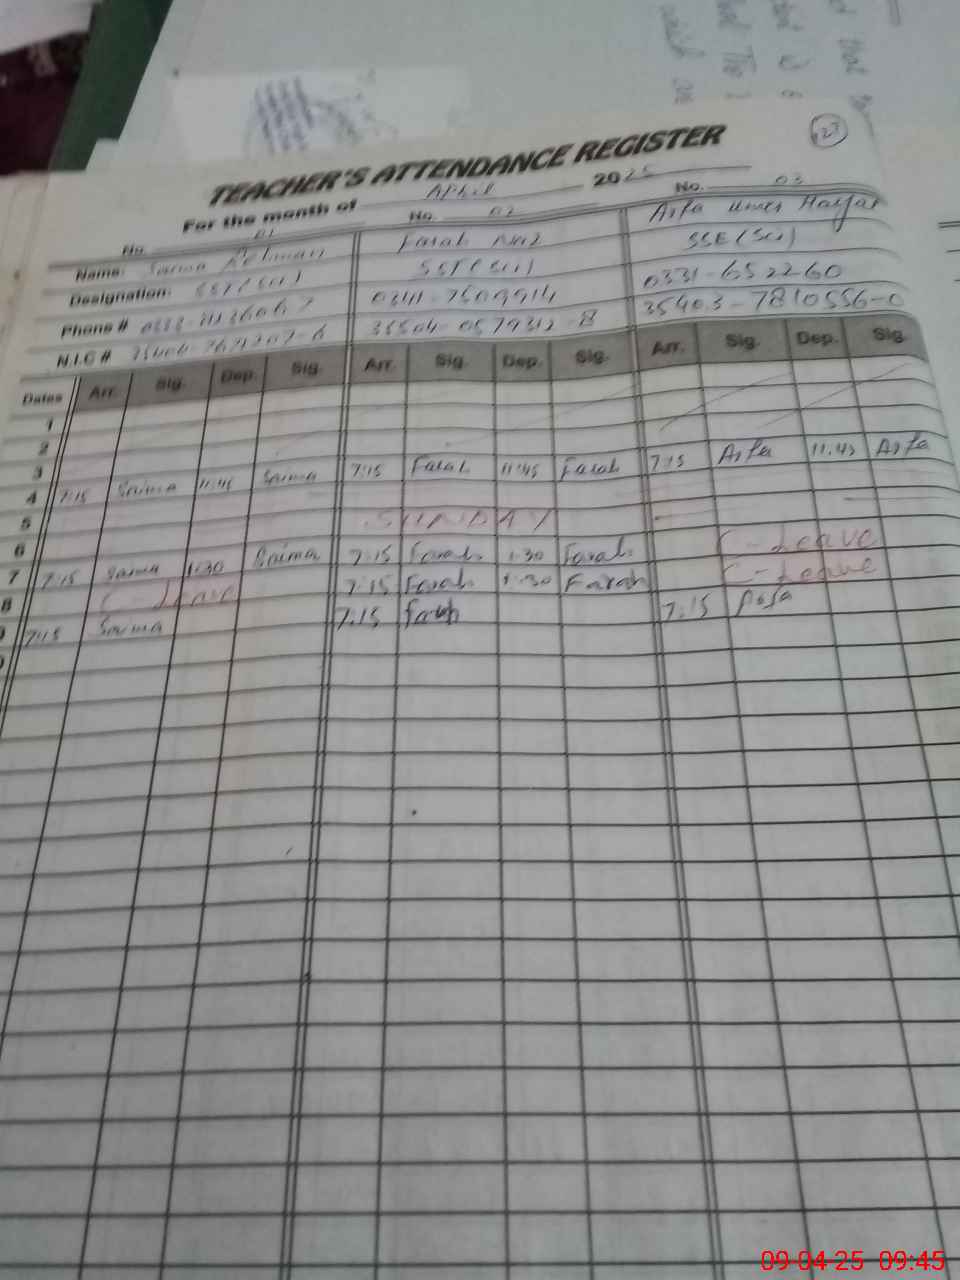 that
The
which are
TEACHER'S ATTENDANCE REGISTER
23
For the month of April 2025
No. 01 No. 02 No. 03
Name: Saima Rehman Farah Naz Arfa
Designation: SST(Sci) SST(Sci) SSE(Sci)
Phone # 0341-7509914 0331-652260
N.I.C # 35504-0579312-8 35403-7810556-0
Dates Arr. Sig. Dep. Sig. Arr. Sig. Dep. Sig. Arr. Sig. Dep. Sig.
1
2
3
4 7:15 Saima 11:45 Saima 7:15 Farah 11:45 Farah 7:15 Arfa 11:45 Arfa
5
6 SUNDAY
7 7:15 Saima 1:30 Saima 7:15 Farah 1:30 Farah C-Leave
8 C-Leave 7:15 Farah 1:30 Farah C-Leave
7:15 Saima 7:15 Farah 7:15 Arfa
09-04-25 09:45